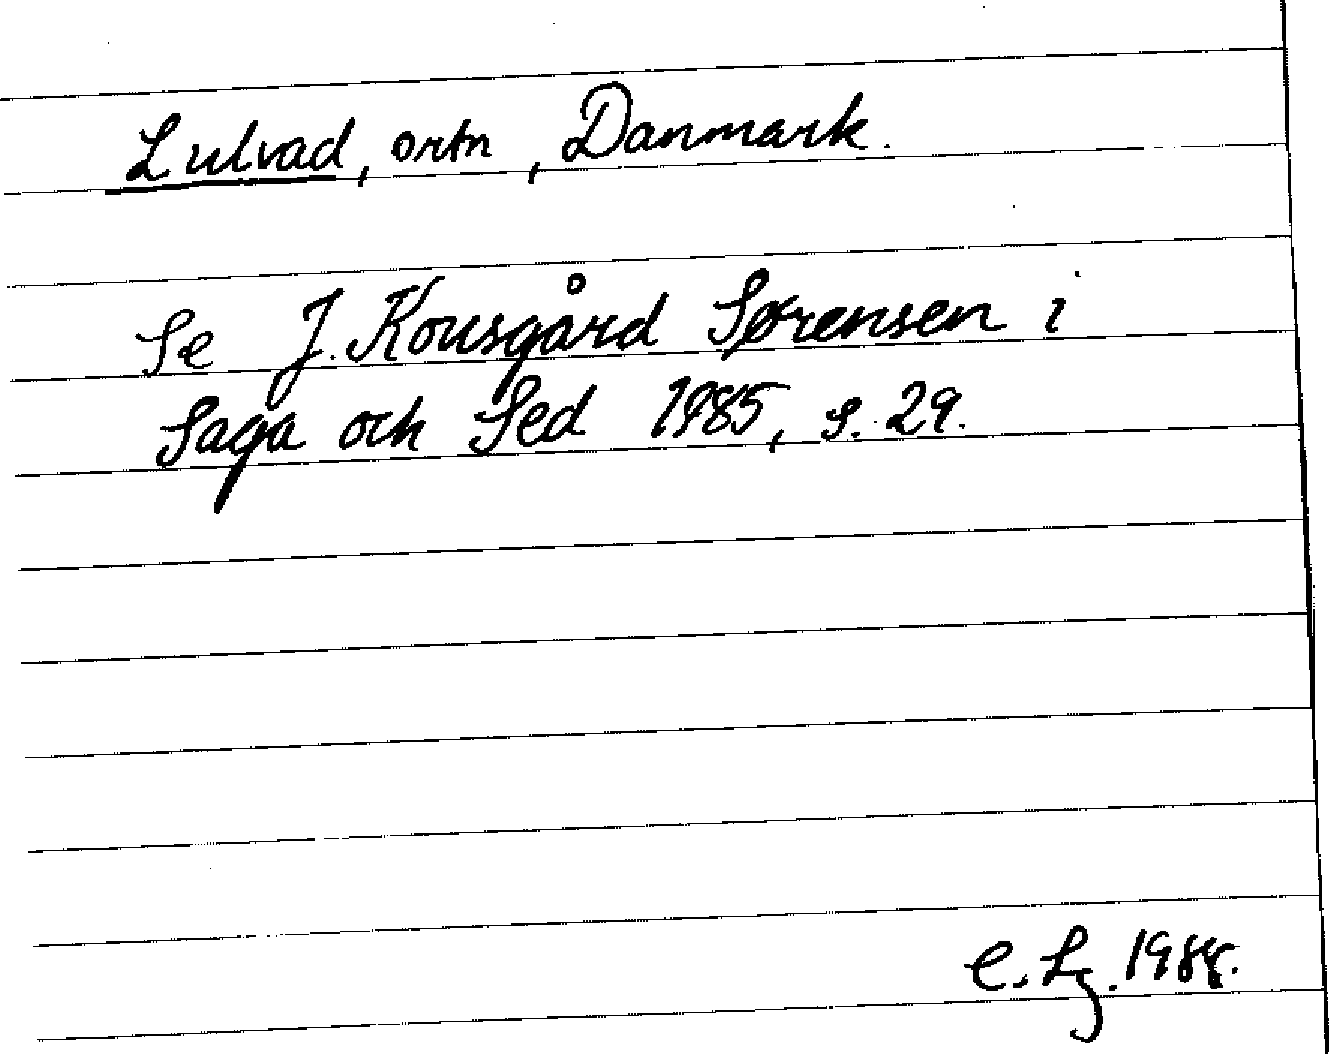 Lulvad, ortn, Danmark.
Se J. Kousgård Sørensen i
Saga och Sed 1985, s. 29.
C. Lj. 1988.